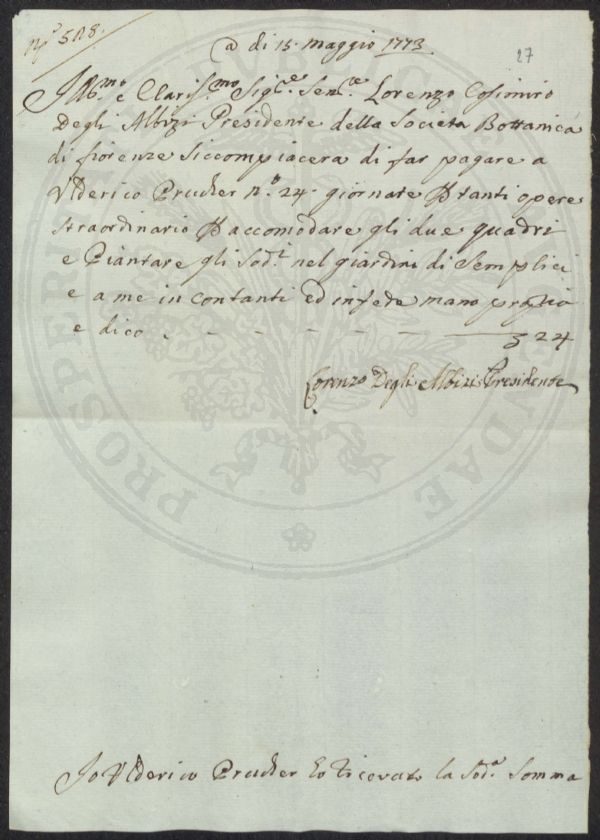 N.º 508.
a di 15. maggio 1773.
27
Ill.mo e Claris.mo Sig.re Sen.re Lorenzo Cosimiro
Degli Albizi Presidente della Societa Bottanica
di fiorenze Siccompiacera di far pagare a
Vlderico Prucker n.º 24. giornate p tanti opere
straordinario p accomodare gli due quadri
e Piantare gli Sod.i nel giardini di Semplici
e a me in contanti ed in fede mano propria
e dico . - - - - - - 24
Lorenzo Degli Albizi Presidente
Jo Vlderico Prucker ho ricevuto la Sod.a Somma
PROSPERITATI PUBLICAE AUGENDAE